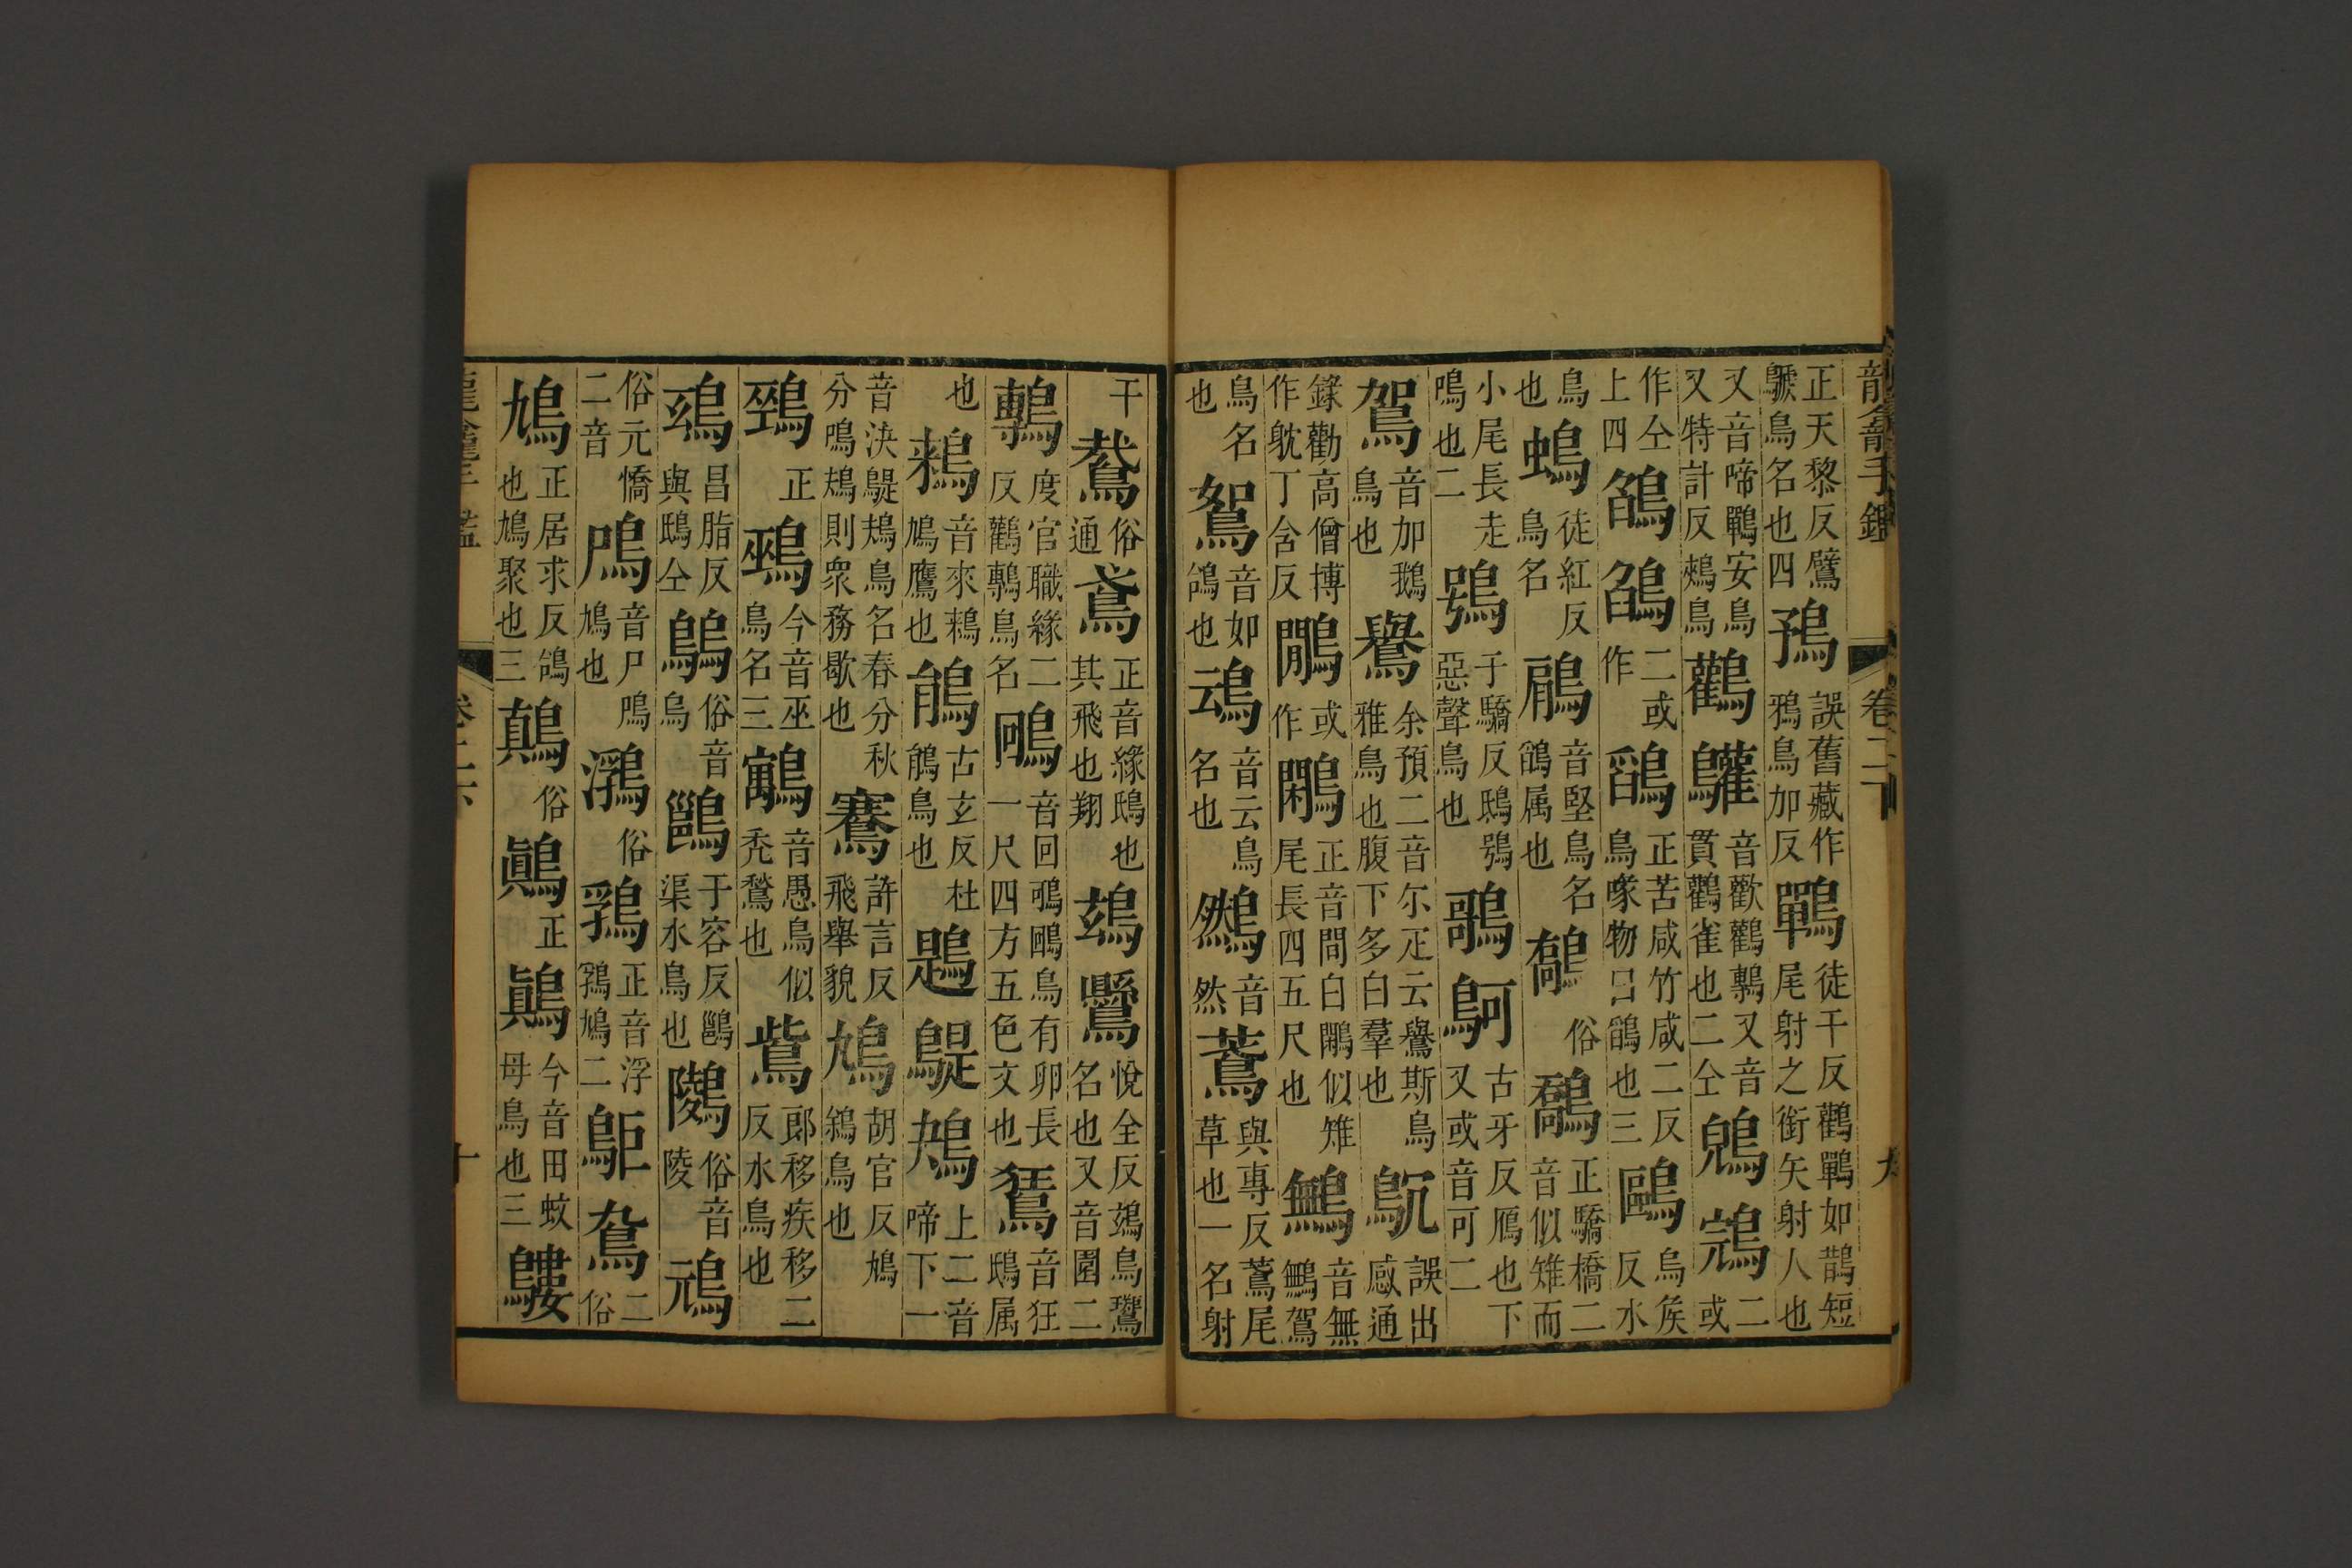 龍龕手鑑 卷二 九
正天黎反鷿鷉鳥名也四鳿誤舊藏作鴉鳥加反鷤徒干反鸛鷤如鵲短尾射之銜矢射人也
又音啼鷤安鳥又特計反鷞鳥鸛𪈩音歡鸛鷒又音貫鸛雀也二仝二或
作仝上四鵮鵮二或作鵮正苦咸竹咸二反鳥㖩物曰鵮也三鷗烏矦反水
鳥也䳋徒紅反鳥名鵳音堅鳥名鵮属也俗正驕橋二音似雉而
小尾長走鳴也二鴞于驕反鴟鴞惡聲鳥也䳗古牙反鴈也下又或音可二
鴐音加鵝鳥也鸒余預二音尒疋云鸒斯鳥雅鳥也腹下多白羣也誤出感通
錄勸高僧博作躭丁含反鷴或作鷳正音間白鷳似雉尾長四五尺也䳱音無䳱鴐
鳥名也鴽音如鴿也䲰音云鳥名也音然䳒與專反䳒尾草也一名射
干俗通鳶正音緣鴟也其飛也翔鵎鷪悅全反鵎鳥鸎名也又音園二
鷒度官職緣二反鸛鷒鳥名音回鴞鷗鳥有卯長一尺四方五色文也鵟音狂鴟属
也鶆音來鶆鳩鷹也鵑古玄反杜鵑鳥也鶗鶗鴂上二音啼下一
音決鶗鴂鳥名春分秋分鳴鴂則衆務歇也鶱許言反飛舉貌鳩胡官反鳩鵷鳥也
正鵐今音巫鳥名三鸆音愚鳥似禿鶖也鴜郎移疾移二反水鳥也
鴟昌脂反與鴟仝俗音烏鷛于容反鷛渠水鳥也俗音陵䲮
俗元憍二音鳲音尸鳲鳩也俗正音浮鳩二䳔鴌二俗
鳩正居求反鴿也鳩聚也三鷏俗鷏正鷆今音田蚊母鳥也三鷜
龍龕手鑑 卷二 十